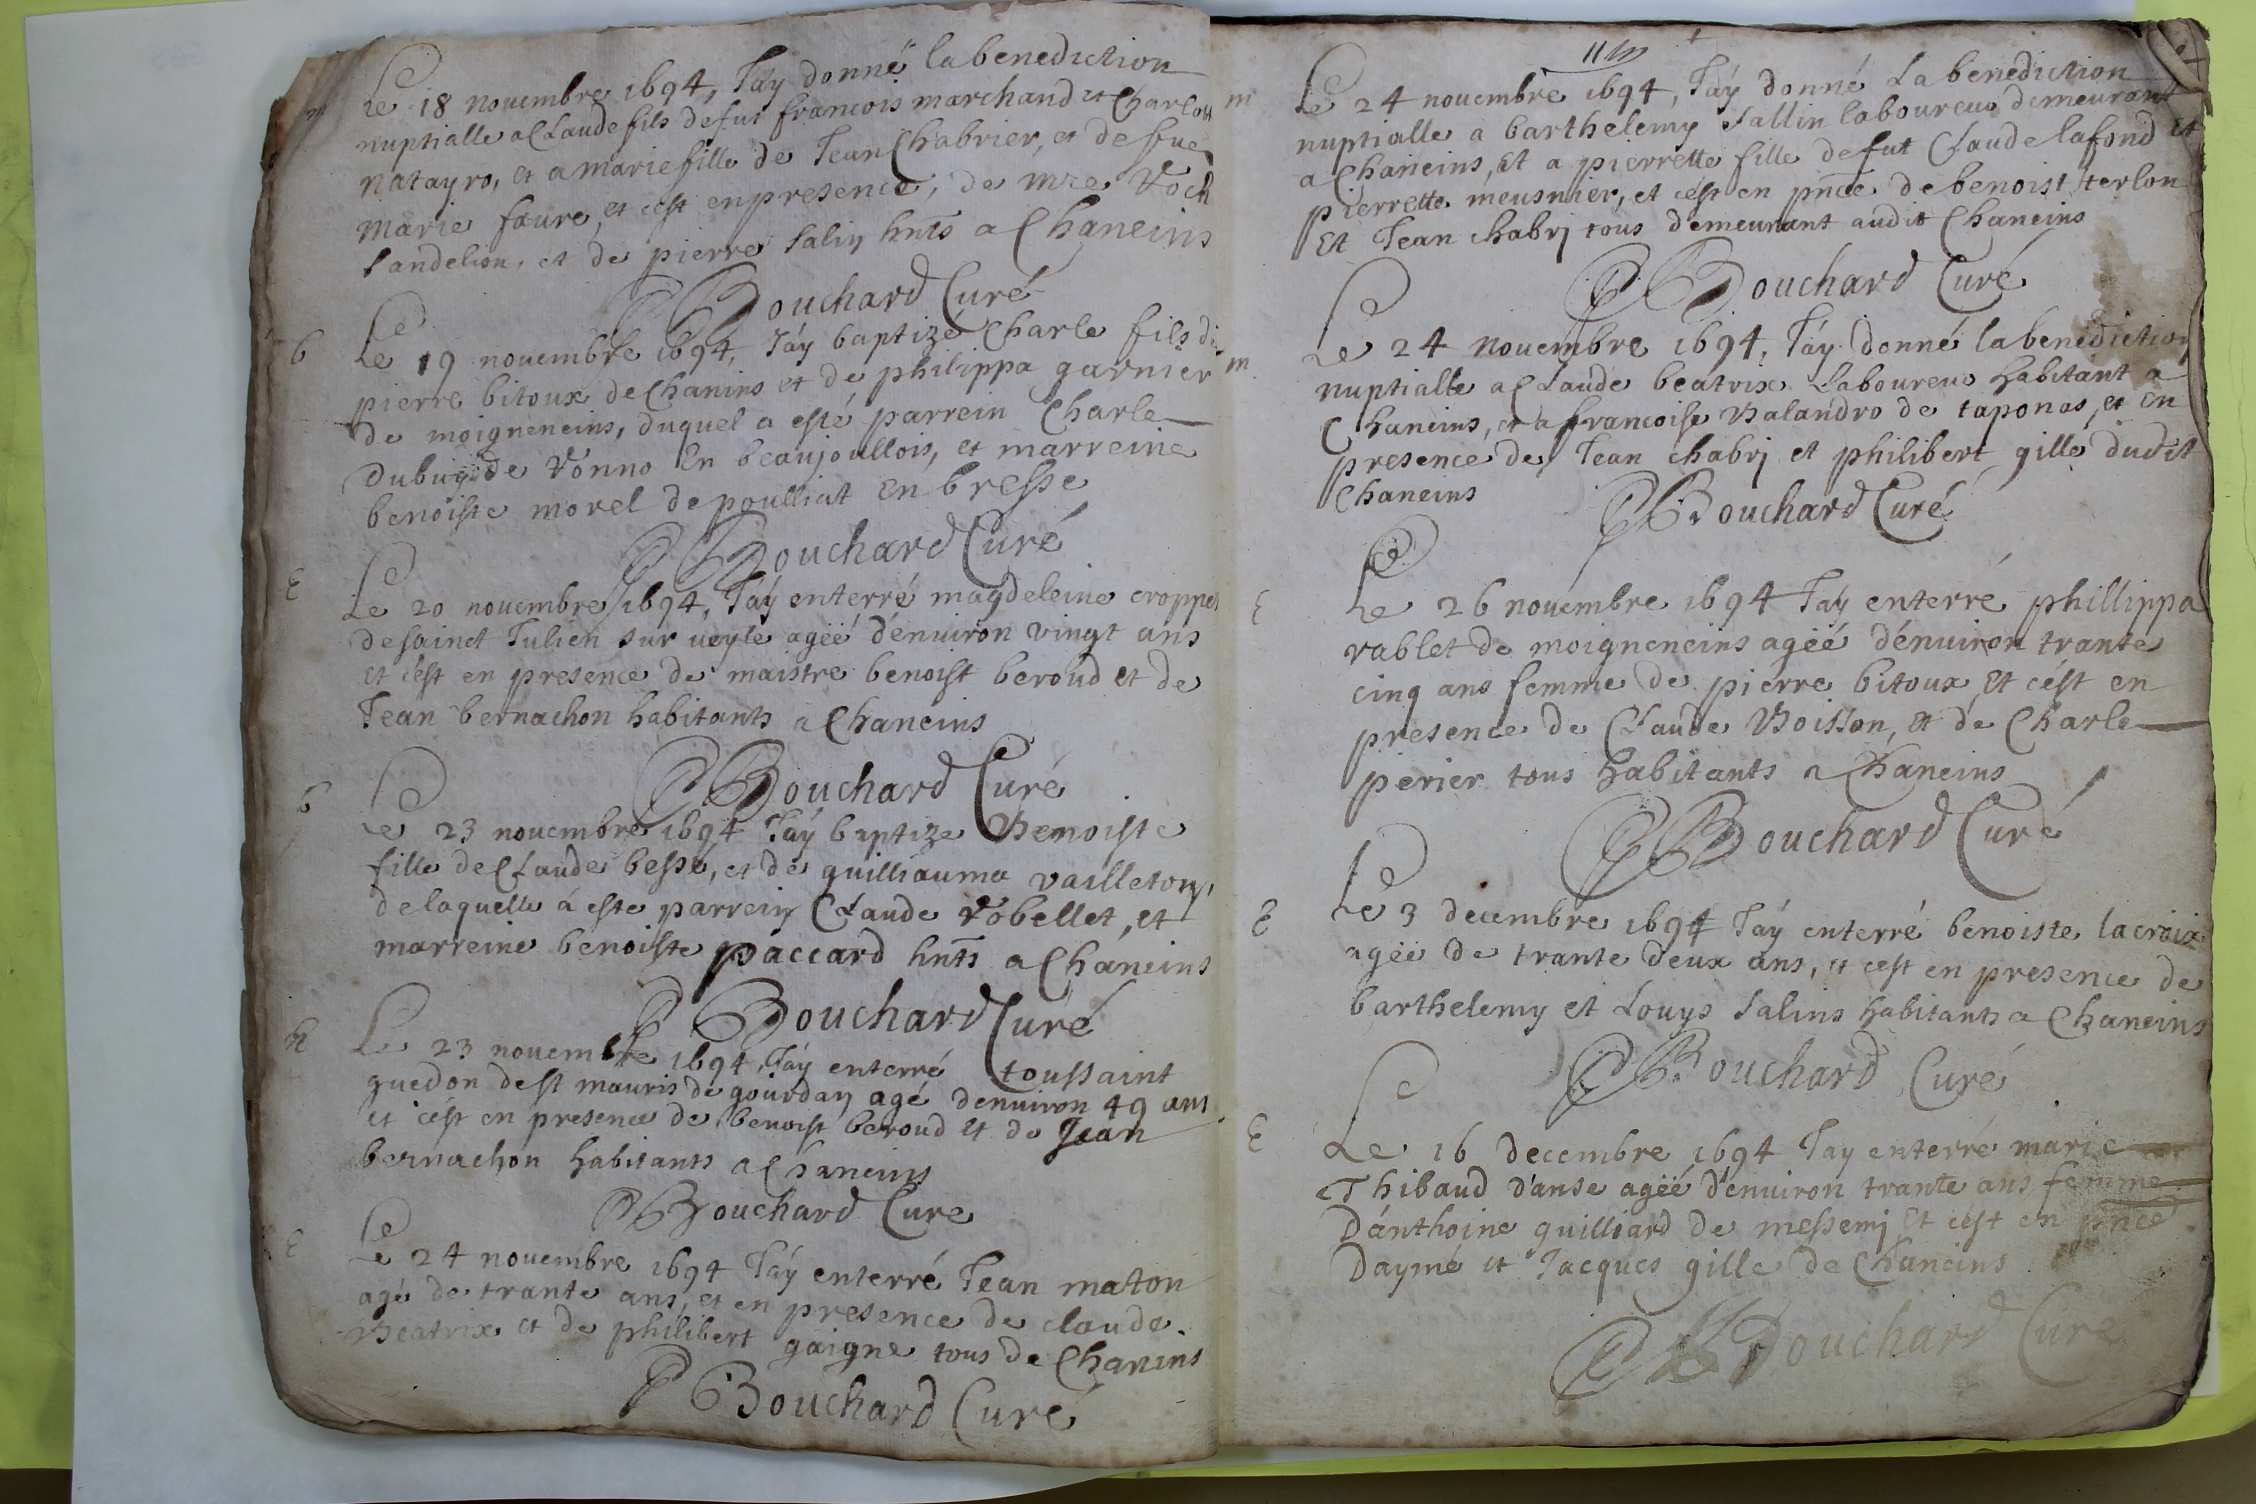 m Le 18 novembre 1694, J'ay donné la benediction
nuptialle a Claude fils de fut francois marchand et Charlott
natayro, et a marie fille de Jean Chabrier, et de fue
marie faure, et cest en presence, de mre Roch
Sandelion, et de pierre Salin hnts a Chaneins
Bouchard Curé
b Le 19 novembre 1694, J'ay baptizé Charle fils de
pierre bitoux de Chanins et de philippa garnier
de moigneneins, duquel a esté parrein Charle
de Vonno En beaujoullois, et marreine
benoiste morel de poulliat en bresse
Bouchard Curé
E Le 20 novembre 1694, J'ay enterré magdeleine croppet
de sainct Julien sur veyle ageé d'environ vingt ans
et c'est en presence de maistre benoist beroud et de
Jean bernachon habitants a Chaneins
Bouchard Curé
b Le 23 novembre 1694 J'ay baptize Benoiste
fille de Claude besse, et de guilliauma vailleton,
de laquelle á este parrein Claude Robellet, et
marreine benoiste paccard hnts a Chaneins
Bouchard Curé
E Le 23 novembre 1694, J'ay enterré toussaint
guedon de st mauris de gourdan agé denviron 49 ans
et c'est en presence de benoist beroud et de Jean
bernachon habitants a Chaneins
Bouchard Cure
E Le 24 novembre 1694 J'ay enterré Jean maton
agé de trante ans, et en presence de claude
Beatrix et de philibert gaigne tous de Chanins
Bouchard Curé
m Le 24 novembre 1694, J'ay donné La benediction
nuptialle a barthelemy Sallin laboureur demeurant
a Chaneins, et a pierrette fille de fut Claude lafond et
pierrette meusnier, et c'est en pnce de benoist terlon
Et Jean chabrj tous demeurant audit Chaneins
Bouchard Curé
m Le 24 Novembre 1694, J'ay donné la benediction
nuptialle a Claude beatrix Laboureur habitant a
Chaneins, et a francoise Balandro de taponas, et en
presence de Jean chabrj et philibert gille dudit
Chaneins Bouchard Curé
E Le 26 novembre 1694 J'ay enterré phillippa
rablet de moigneneins ageé d'environ trante
cinq ans femme de pierre bitoux Et c'est en
presence de Claude Boisson, et de Charle
perier tous habitants a Chaneins
Bouchard Curé
E Le 3 decembre 1694 J'ay enterré benoiste lacroix
ageé de trante deux ans, et cest en presence de
barthelemy et Louys Salins habitants a Chaneins
Bouchard Curé
E Le 16 decembre 1694 J'ay enterré marie
Thibaud d'anse ageé d'environ trante ans femme
D'anthoine guilliard de messemj Et c'est en pnce
Daymé et Jacques gille de Chaneins
Bouchard Curé